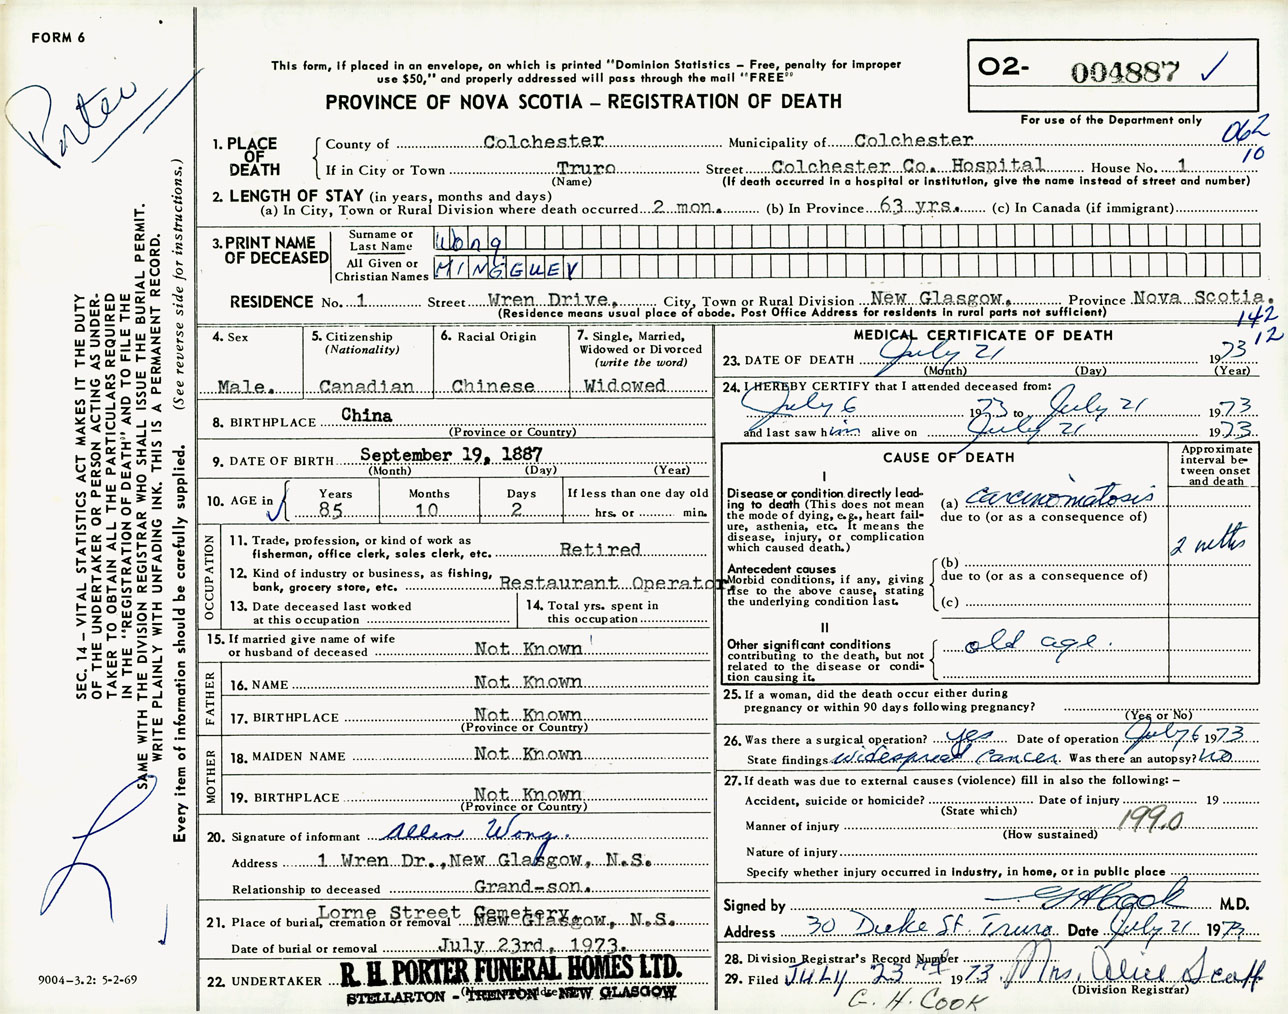 FORM 6
Porter
This form, if placed in an envelope, on which is printed "Dominion Statistics – Free, penalty for improper
use $50," and properly addressed will pass through the mail "FREE"
PROVINCE OF NOVA SCOTIA – REGISTRATION OF DEATH
O2- 004887 ✓
For use of the Department only
062
10
1. PLACE OF DEATH
County of Colchester Municipality of Colchester
If in City or Town Truro Street Colchester Co. Hospital House No. 1
(Name) (If death occurred in a hospital or institution, give the name instead of street and number)
2. LENGTH OF STAY (in years, months and days)
(a) In City, Town or Rural Division where death occurred 2 mon. (b) In Province 63 yrs. (c) In Canada (if immigrant)
3. PRINT NAME OF DECEASED
Surname or Last Name Wong
All Given or Christian Names MINGGUEY
RESIDENCE No. 1 Street Wren Drive, City, Town or Rural Division New Glasgow, Province Nova Scotia.
(Residence means usual place of abode. Post Office Address for residents in rural parts not sufficient)
142
12
4. Sex
Male.
5. Citizenship (Nationality)
Canadian
6. Racial Origin
Chinese
7. Single, Married, Widowed or Divorced (write the word)
Widowed
8. BIRTHPLACE China
(Province or Country)
9. DATE OF BIRTH September 19, 1887
(Month) (Day) (Year)
10. AGE in Years 85 Months 10 Days 2 If less than one day old
hrs. or min.
OCCUPATION
11. Trade, profession, or kind of work as
fisherman, office clerk, sales clerk, etc. Retired
12. Kind of industry or business, as fishing,
bank, grocery store, etc. Restaurant Operator.
13. Date deceased last worked
at this occupation
14. Total yrs. spent in
this occupation
15. If married give name of wife
or husband of deceased Not Known
FATHER
16. NAME Not Known
17. BIRTHPLACE Not Known
(Province or Country)
MOTHER
18. MAIDEN NAME Not Known
19. BIRTHPLACE Not Known
(Province or Country)
20. Signature of informant Allen Wong.
Address 1 Wren Dr., New Glasgow, N.S.
Relationship to deceased Grand-son.
21. Place of burial, cremation or removal Lorne Street Cemetery, New Glasgow, N.S.
Date of burial or removal July 23rd, 1973.
22. UNDERTAKER R. H. PORTER FUNERAL HOMES LTD.
STELLARTON - TRENTON - NEW GLASGOW
MEDICAL CERTIFICATE OF DEATH
23. DATE OF DEATH July 21 1973
(Month) (Day) (Year)
24. I HEREBY CERTIFY that I attended deceased from:
July 6 1973 to July 21 1973
and last saw him alive on July 21 1973
CAUSE OF DEATH
Approximate interval between onset and death
I
Disease or condition directly lead-
ing to death (This does not mean
the mode of dying, e.g., heart fail-
ure, asthenia, etc. It means the
disease, injury, or complication
which caused death.)
(a) carcinomatosis
due to (or as a consequence of)
2 mths
Antecedent causes
Morbid conditions, if any, giving
rise to the above cause, stating
the underlying condition last.
(b)
due to (or as a consequence of)
(c)
II
Other significant conditions
contributing to the death, but not
related to the disease or condi-
tion causing it.
old age.
25. If a woman, did the death occur either during
pregnancy or within 90 days following pregnancy?
(Yes or No)
26. Was there a surgical operation? yes Date of operation July 6 1973
State findings widespread cancer Was there an autopsy? no
27. If death was due to external causes (violence) fill in also the following: –
Accident, suicide or homicide? Date of injury 19
(State which)
Manner of injury 199.0
(How sustained)
Nature of injury
Specify whether injury occurred in industry, in home, or in public place
Signed by G H Cook M.D.
Address 30 Duke St. Truro Date July 21 1973
28. Division Registrar's Record Number
29. Filed JULY 23rd 1973 Mrs. Alice Scott
(Division Registrar)
G. H. COOK
SEC. 14 – VITAL STATISTICS ACT MAKES IT THE DUTY
OF THE UNDERTAKER OR PERSON ACTING AS UNDER-
TAKER TO OBTAIN ALL THE PARTICULARS REQUIRED
IN THE "REGISTRATION OF DEATH" AND TO FILE THE
SAME WITH THE DIVISION REGISTRAR WHO SHALL ISSUE THE BURIAL PERMIT.
WRITE PLAINLY WITH UNFADING INK. THIS IS A PERMANENT RECORD.
Every item of information should be carefully supplied. (See reverse side for instructions.)
9004-3.2: 5-2-69